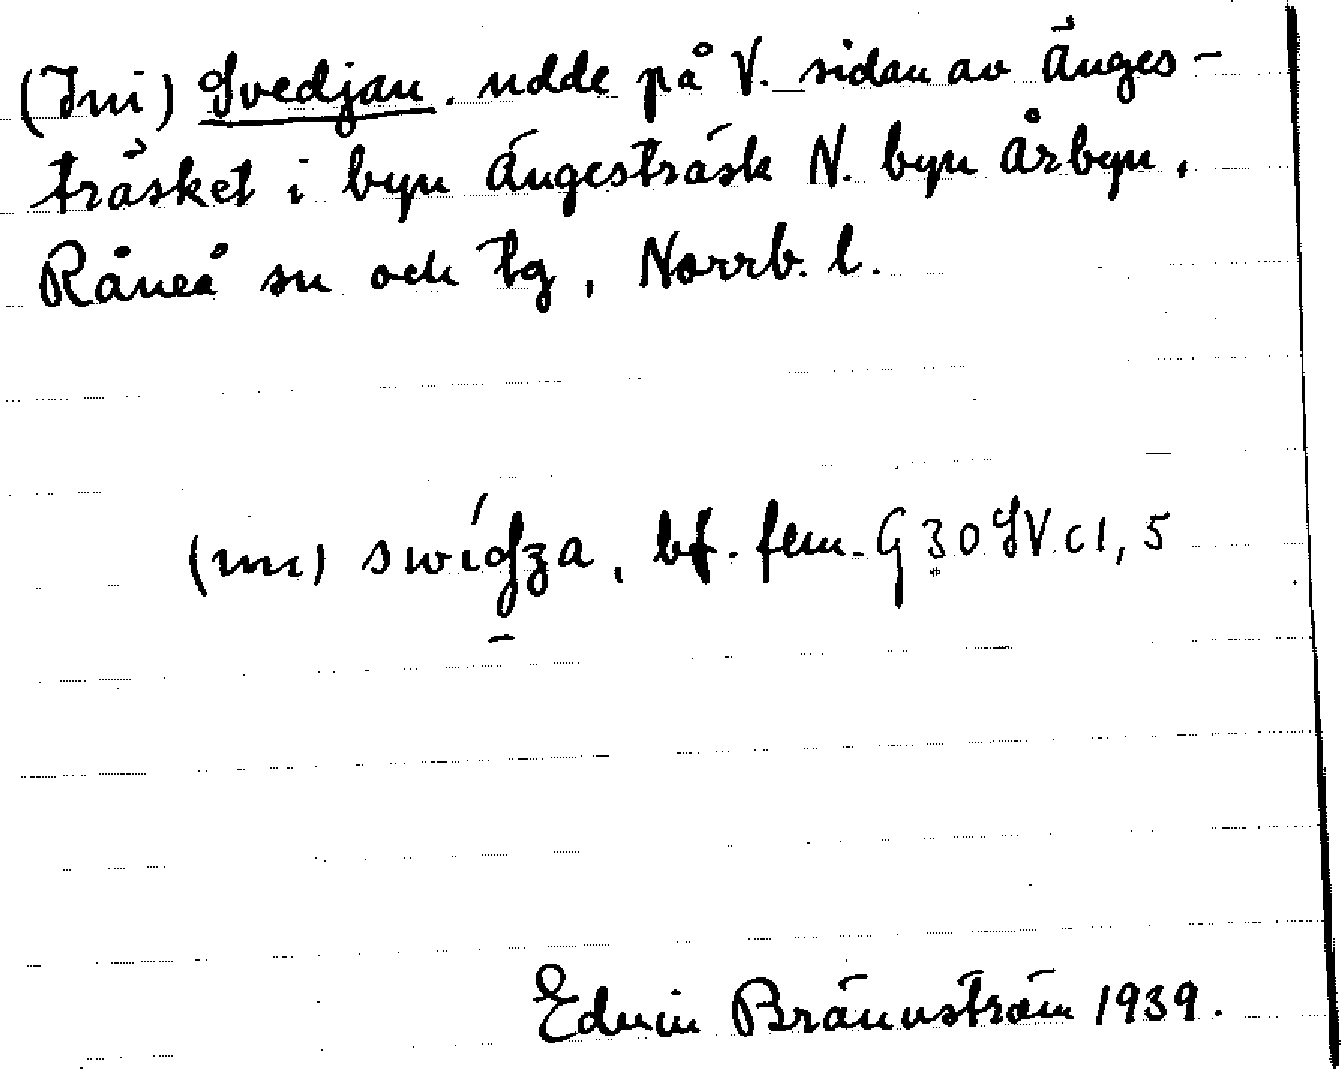 (Ini) Svedjan. udde på V. sidan av Änges-
träsket i byn Ängesträsk N. byn Årbyn,
Råneå sn och tg, Norrb. l.
(ını) bf. fem. G 30 SV c1, 5
Edvin Brännström 1939.